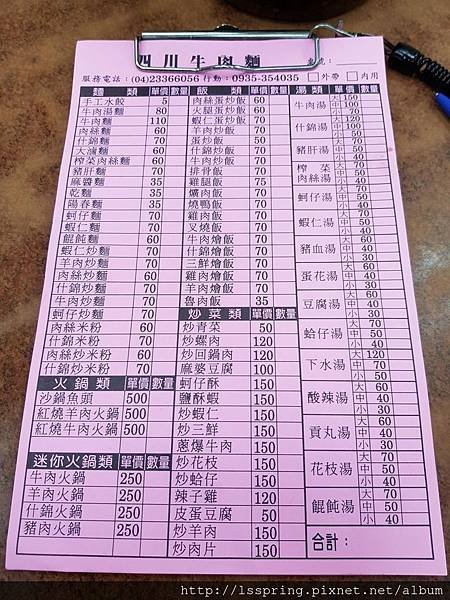 四川牛肉麵
服務電話：(04)23366056 行動：0935-354035 □外帶 □內用
麵類 單價 數量
手工水餃 5
牛肉湯麵 80
牛肉麵 110
肉絲麵 60
什錦麵 70
大滷麵 60
榨菜肉絲麵 60
豬肝麵 70
麻醬麵 35
乾麵 35
陽春麵 35
蚵仔麵 70
蝦仁麵 70
餛飩麵 60
蝦仁炒麵 70
羊肉炒麵 70
肉絲炒麵 60
什錦炒麵 70
牛肉炒麵 70
蚵仔炒麵 70
肉絲米粉 60
什錦米粉 70
肉絲炒米粉 60
什錦炒米粉 70
火鍋類 單價 數量
沙鍋魚頭 500
紅燒羊肉火鍋 500
紅燒牛肉火鍋 500
迷你火鍋類 單價 數量
牛肉火鍋 250
羊肉火鍋 250
什錦火鍋 250
豬肉火鍋 250
飯類 單價 數量
肉絲蛋炒飯 60
火腿蛋炒飯 60
蝦仁蛋炒飯 70
羊肉炒飯 70
蛋炒飯 50
什錦炒飯 70
牛肉炒飯 70
排骨飯 70
雞腿飯 75
爌肉飯 70
燒鴨飯 70
雞肉飯 70
叉燒飯 70
牛肉燴飯 70
什錦燴飯 70
三鮮燴飯 70
雞肉燴飯 70
羊肉燴飯 70
魯肉飯 35
炒菜類 單價 數量
炒青菜 50
炒螺肉 120
炒回鍋肉 120
麻婆豆腐 100
蚵仔酥 150
鹽酥蝦 150
炒蝦仁 150
炒三鮮 150
蔥爆牛肉 150
炒花枝 150
炒蛤仔 150
辣子雞 120
皮蛋豆腐 50
炒羊肉 150
炒肉片 150
湯類 單價 數量
牛肉湯 大 150 中 100 小 70
什錦湯 大 120 中 100 小 70
豬肝湯 大 70 中 50 小 40
榨菜肉絲湯 大 70 中 50 小 40
蚵仔湯 大 70 中 50 小 40
蝦仁湯 大 70 中 50 小 40
豬血湯 大 60 中 40 小 30
蛋花湯 大 60 中 40 小 30
豆腐湯 大 60 中 40 小 30
蛤仔湯 大 70 中 50 小 40
下水湯 大 120 中 70 小 50
酸辣湯 大 60 中 40 小 30
貢丸湯 大 60 中 40 小 30
花枝湯 大 70 中 50 小 40
餛飩湯 大 70 中 50 小 40
合計：
http://lsspring.pixnet.net/album